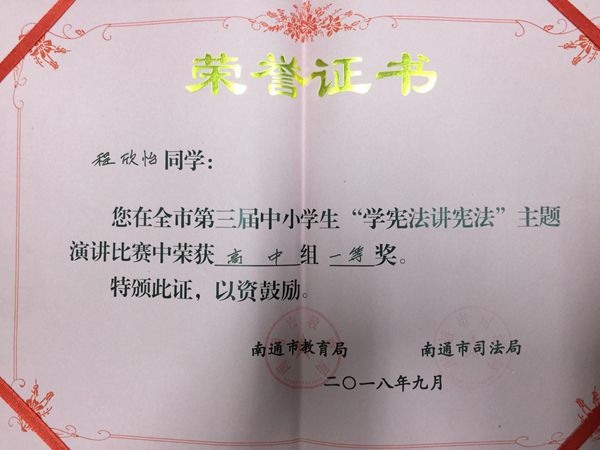 荣誉证书
程欣怡同学：
您在全市第三届中小学生“学宪法讲宪法”主题
演讲比赛中荣获 高中 组 一等 奖。
特颁此证，以资鼓励。
南通市教育局 南通市司法局
二〇一八年九月